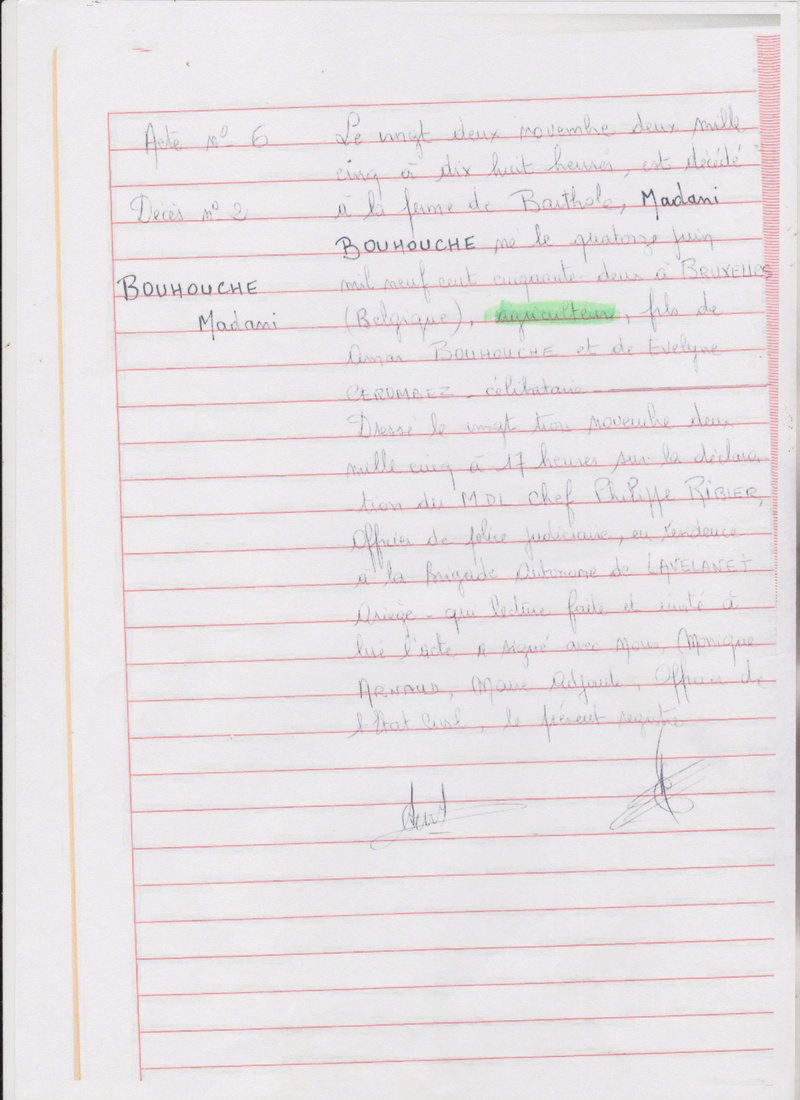 Acte n° 6
Décès n° 2
BOUHOUCHE
Madani
Le vingt deux novembre deux mille
cinq à dix huit heures, est décédé
à la ferme de Barthole, Madani
BOUHOUCHE né le quatorze juin
mil neuf cent cinquante deux à BRUXELLES
(Belgique), agriculteur, fils de
Amar BOUHOUCHE et de Evelyne
célibataire
Dressé le vingt trois novembre deux
mille cinq à 17 heures sur la déclara
tion du MDL chef Philippe RIBIER,
Officier de police judiciaire, en résidence
à la Brigade Autonome de LAVELANET
Ariège - qui lecture faite et invité à
lire l'acte a signé avec Nous, Monique
ARNAUD, Maire Adjoint, Officier de
l'Etat Civil, le présent registre